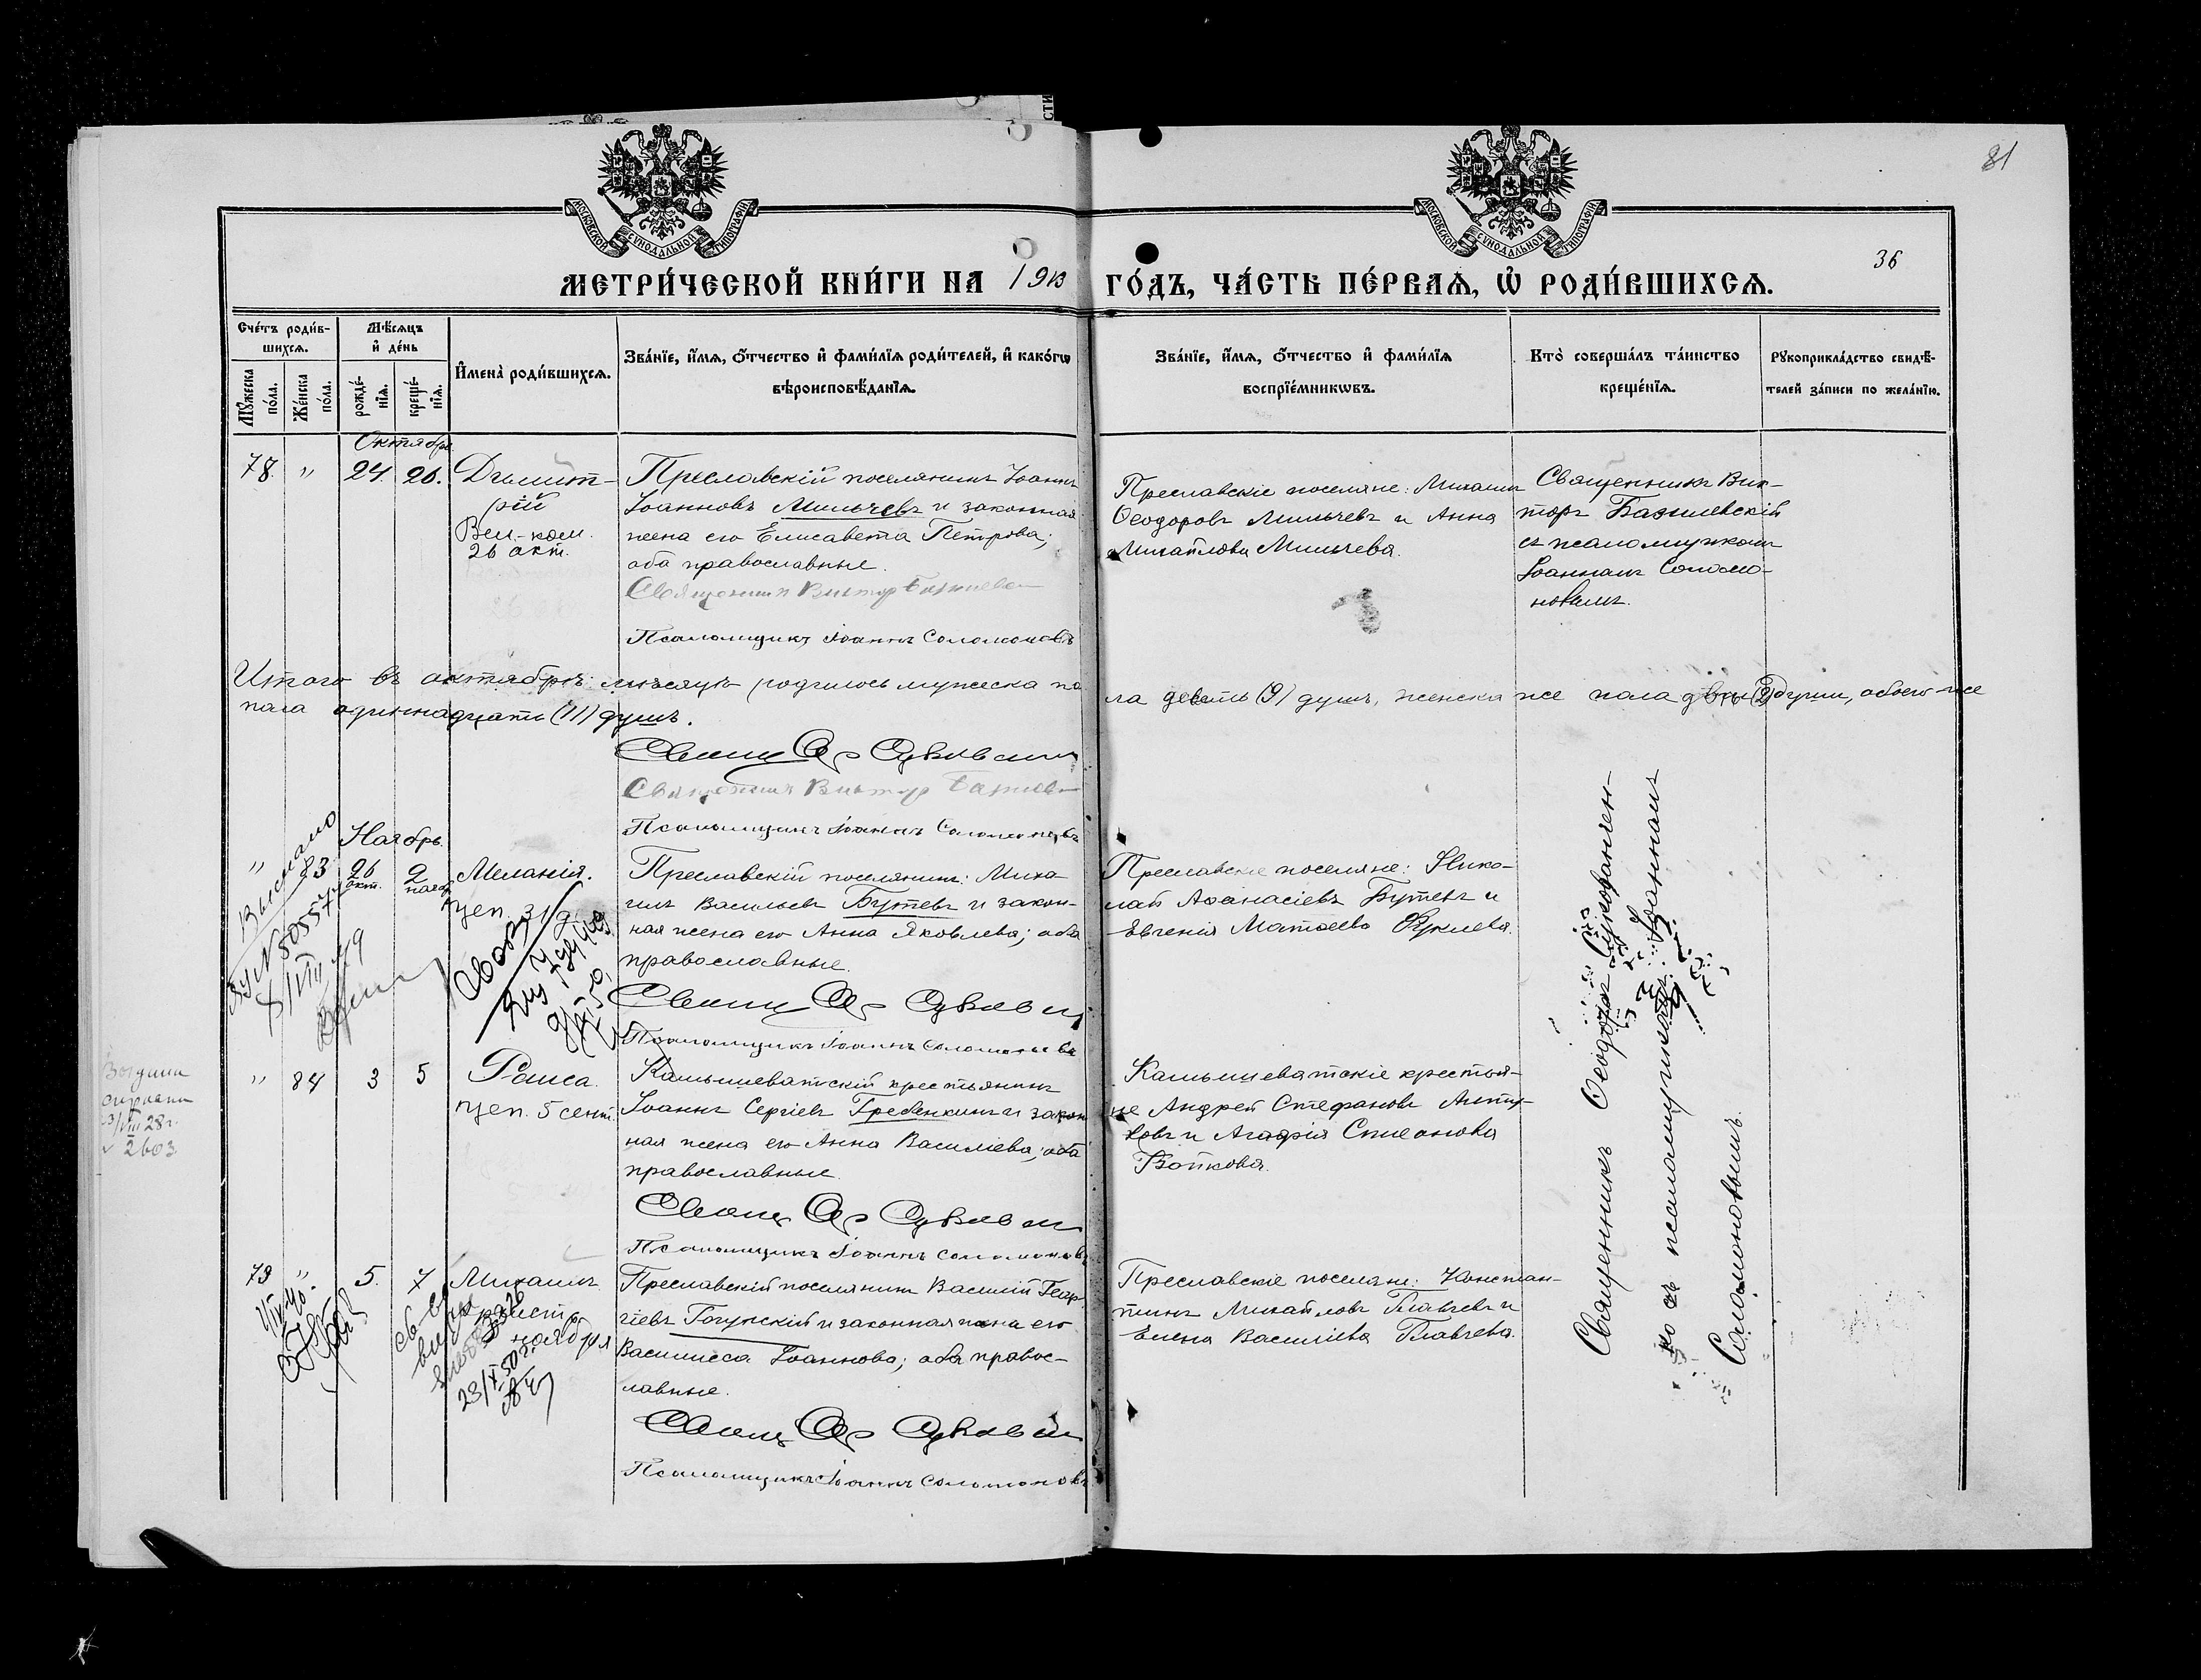 81
МОСКОВСКОЙ СѴНОДАЛЬНОЙ ТИПОГРАФІИ
МОСКОВСКОЙ СѴНОДАЛЬНОЙ ТИПОГРАФІИ
36
МЕТРИ́ЧЕСКОЙ КНИ́ГИ НА 1913 ГО́ДЪ, ЧА́СТЬ ПЕ́РВАѦ, Ѡ РОДИ́ВШИХСѦ.
Сче́тъ роди́в-
шихсѧ.
Мꙋ́жеска по́ла.
Же́нска по́ла.
Мѣ́сѧцъ
и҆ де́нь
рожде́-
нїѧ.
креще́-
нїѧ.
И҆мена̀ роди́вшихсѧ.
Зва́нїе, и҆́мѧ, ѻ҆́тчество и҆ фами́лїѧ роди́телей, и҆ како́гѡ
вѣроисповѣ́данїѧ.
Зва́нїе, и҆́мѧ, ѻ҆́тчество и҆ фами́лїѧ
воспрїе́мникѡвъ.
Кто̀ соверша́лъ та́инство
креще́нїѧ.
Рꙋкоприкла́дство свидѣ́-
телей за́писи по жела́нїю.
Октябрь
78. " 24. 26. Димит-
рій
Вел.-ком.
26 окт.
Преславскій поселянинъ Іоаннъ
Іоанновъ Мильчевъ и законная
жена его Елисавета Петрова;
оба православные.
Священникъ Викторъ
Псаломщикъ Іоаннъ Соломоновъ
Преславскіе поселяне: Михаилъ
Ѳеодоровъ Мильчевъ и Анна
Михайлова Мильчева.
Священникъ Вик-
торъ Бажилевскій
съ псаломщикомъ
Іоанномъ Соломо-
новымъ.
Итого въ октябрѣ мѣсяцѣ родилось мужеска по
ла девять (9) душъ, женска же пола двѣ (2) души, обоего же
пола одиннадцать (11) душъ.
Священникъ Викторъ
Псаломщикъ Іоаннъ Соломоновъ
Ноябрь.
" 83 26 окт. 2 нояб. Меланія.
31 д
Преславскій поселянинъ: Миха-
илъ Васильевъ Бутевъ и закон-
ная жена его Анна Яковлева; оба
православные.
Псаломщикъ Іоаннъ Соломоновъ
Преславскіе поселяне: Нико-
лай Аѳанасіевъ Бутевъ и
Евгенія Матѳеева Фуклева.
Выслано
N 50557
8/VIII 49
" 84 3 5 Раиса.
5 сент.
Камышеватскій крестьянинъ
Іоаннъ Сергіевъ Гребенкинъ и закон
ная жена его Анна Василіева; оба
православные.
Псаломщикъ Іоаннъ Соломоновъ
Камышеватскіе крестья-
не Андрей Стефановъ
и Агаѳія
Бойкова.
28 г.
2603
79 " 5. 7 Михаилъ
ноября
Преславскій поселянинъ Василій Геор-
гіевъ и законная жена его
Василиса Іоаннова; оба правос-
лавные.
Псаломщикъ Іоаннъ Соломоновъ
Преславскіе поселяне: Констан-
тинъ Михайловъ Главчевъ и
Елена Василіева Главчева.
Священникъ Ѳеодоръ
съ псаломщикомъ Іоанномъ
Соломоновымъ.